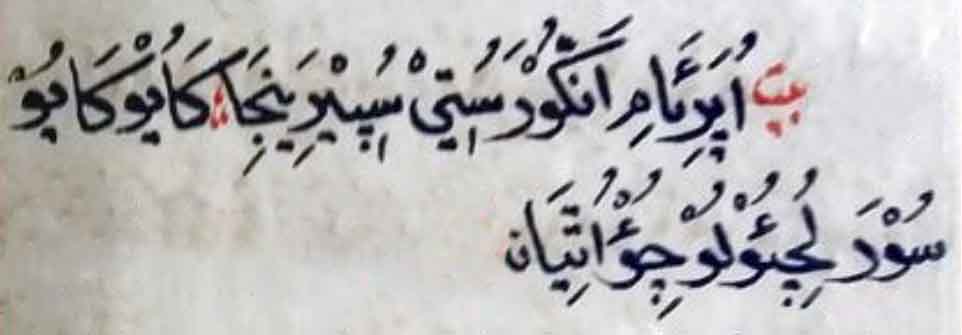 بيت اُپَرِئَامِ اَنكُّوْرَ سِتِيْ سِپِيْرِيَنِجَا؛ كَايُوْ كَايُوْ
سُوْرَ لِچِئُوْلُوْ چِئُوْ اَتِيَانَ